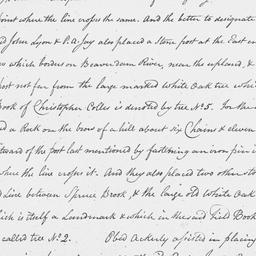 point where the line crosses the same. And the better to designate
d John Lyon & P. A. Jay also placed a Stone post at the East en
s which borders on Beaverdam River, near the upland, &
post not far from the large marked White Oak tree whi
Book of Christopher Colles is denoted by tree No. 5. For the
d a Rock on the brow of a hill about six Chains & eleven
stward of the post last mentioned by fastening an iron pin i
where the line crosses it. And they also placed two other sto
d Line between Spruce Brook, & the large old White Oak
hich is itself a Landmark & which in the said Field Book
called tree No. 2. Obed Ackerly assisted in placing